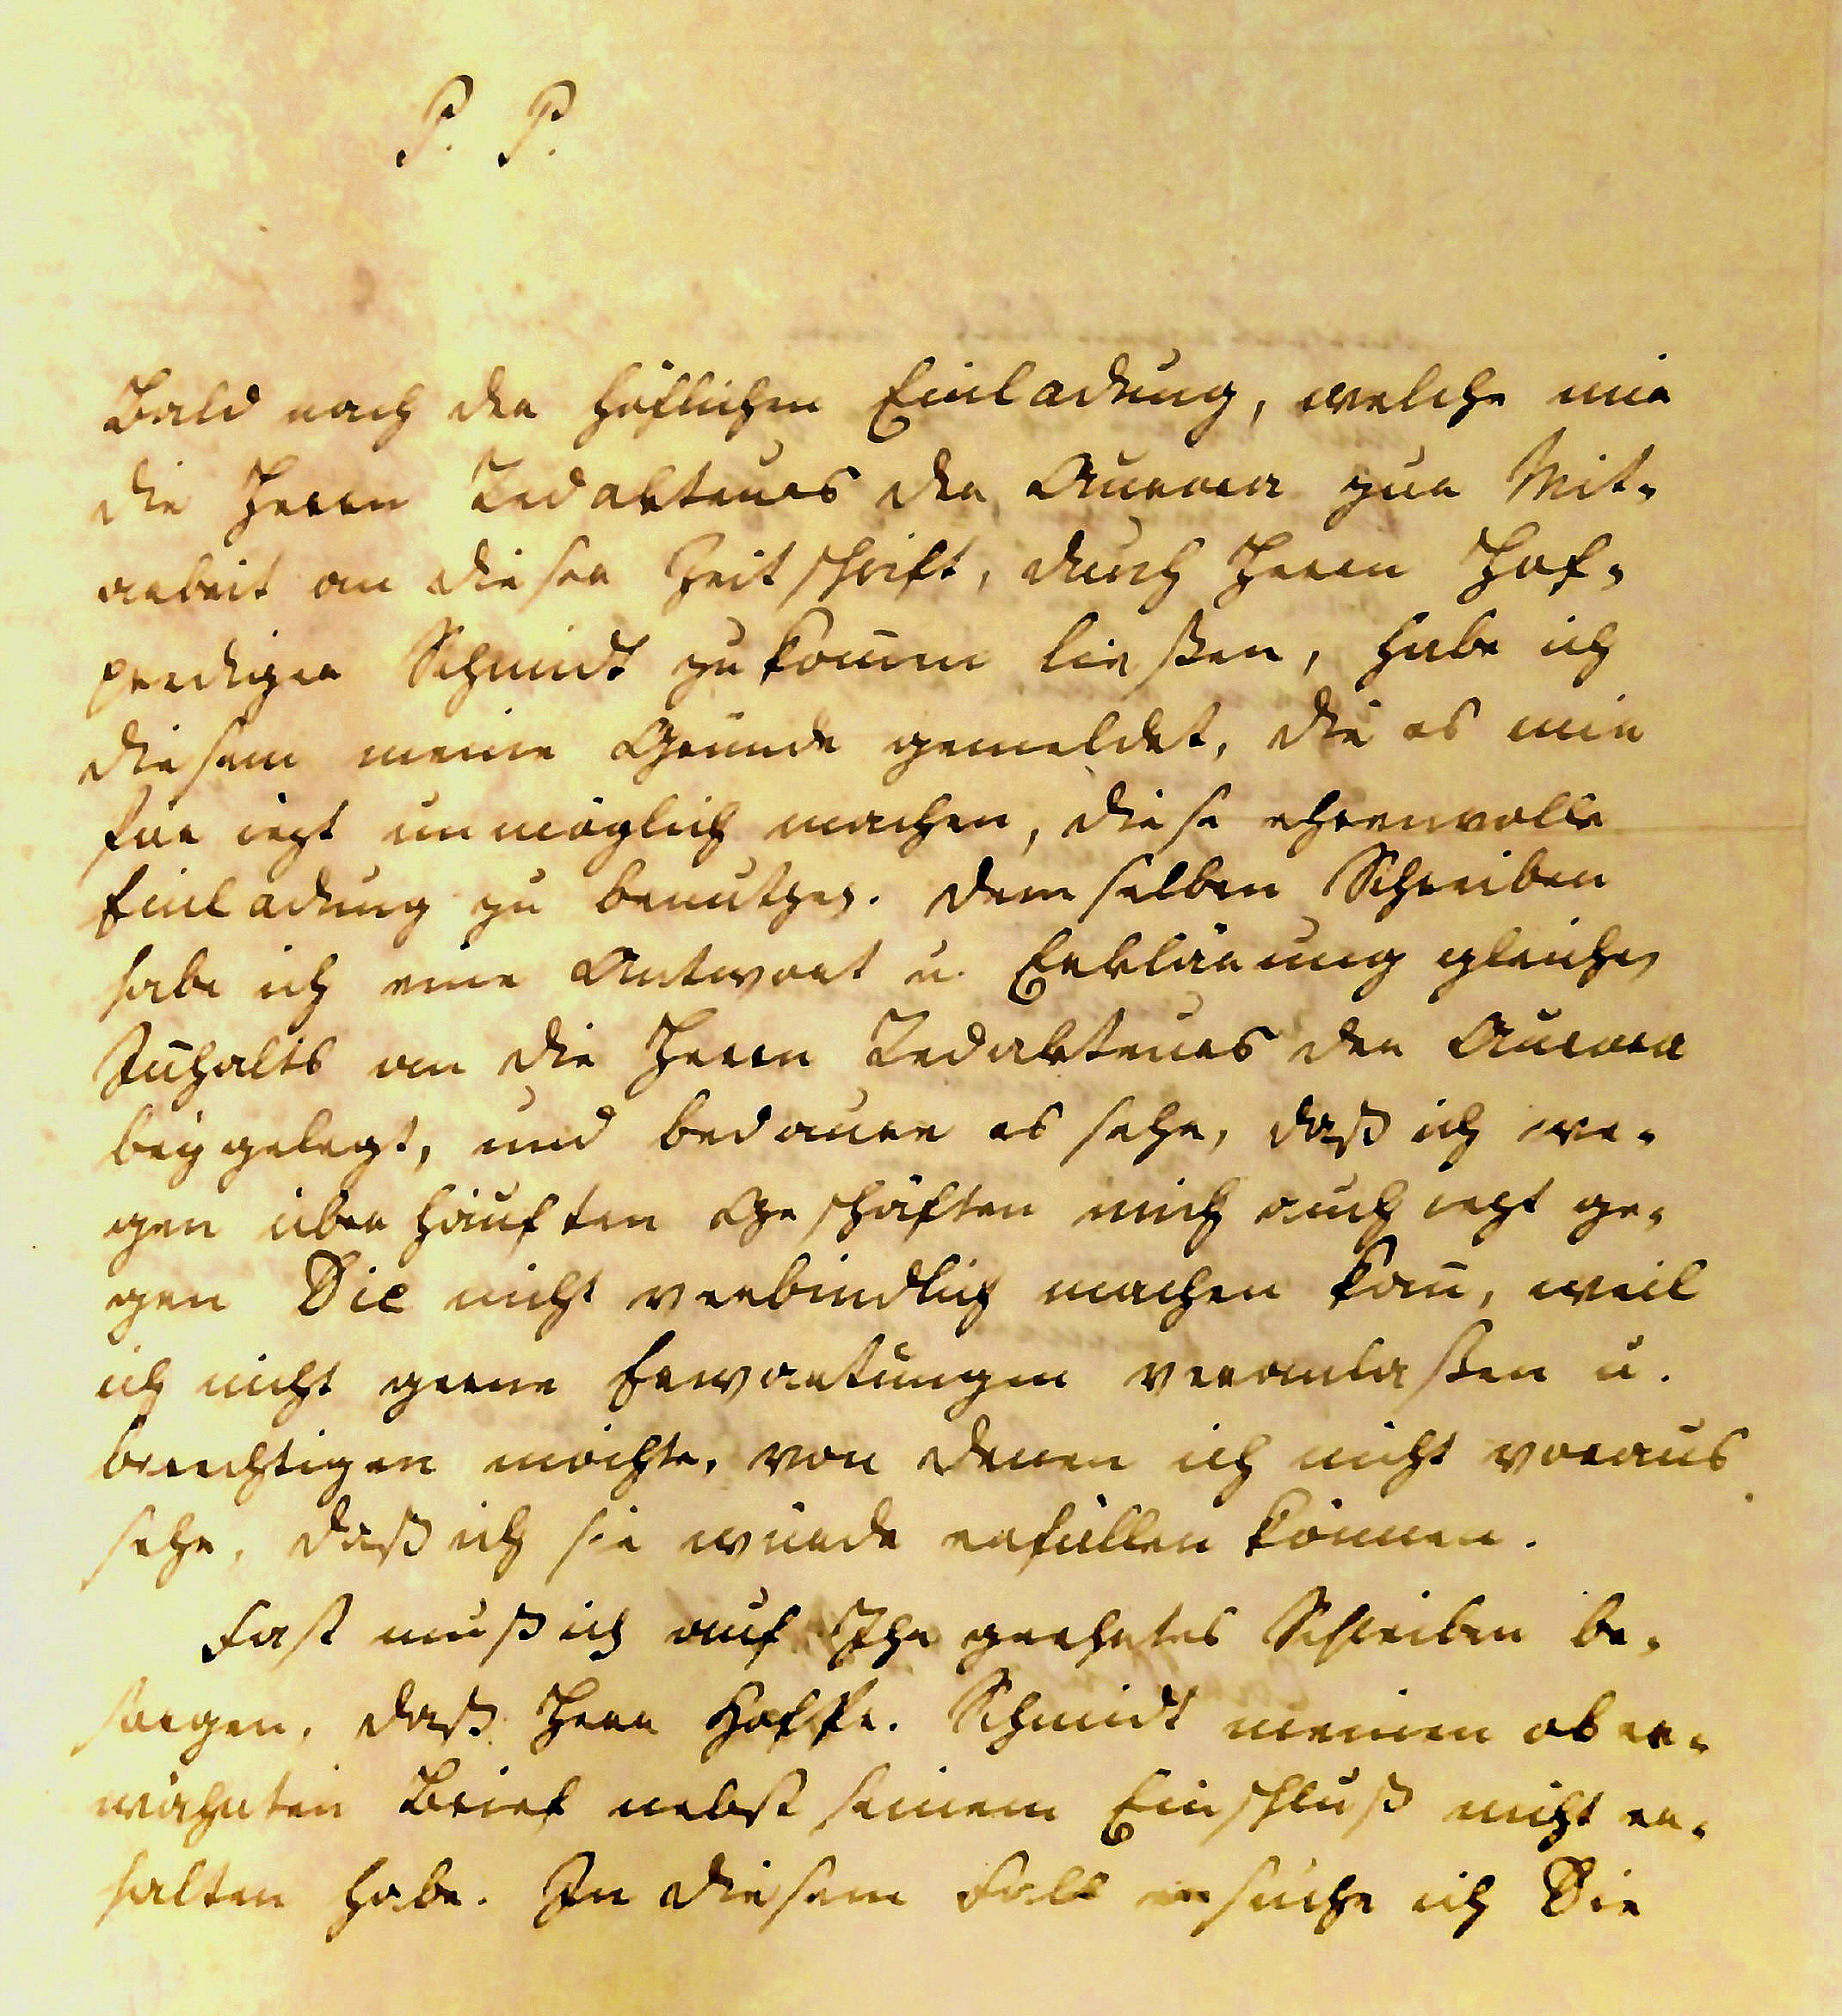 P. P.
Bald nach der höflichen Einladung, welche mir
die Herrn Redakteurs der Aurora zur Mit-
arbeit an dieser Zeitschrift, durch Herrn Hof-
prediger Schmidt zukom̄en ließen, habe ich
diesem meine Gründe gemeldet, die es mir
für iezt unmöglich machen, diese ehrenvolle
Einladung zu benutzen. Demselben Schreiben
habe ich eine Antwort u. Erklärung gleichen
In̄halts an die Herrn Redakteurs der Aurora
beygelegt, und bedaure es sehr, daß ich we-
gen überhäuften Geschäften mich auch iezt ge-
gen Sie nicht verbindlich machen kan̄, weil
ich nicht gerne Erwartungen veranlaßen u.
berechtigen möchte, von denen ich nicht voraus
sehe, daß ich sie würde erfüllen können.
Fast muß ich auf Ihr geehrtes Schreiben be-
sorgen, daß Herr Hofpr. Schmidt meinen ober-
wähnten Brief nebst seinem Einschluß nicht er-
halten habe. In diesem Fall ersuche ich Sie